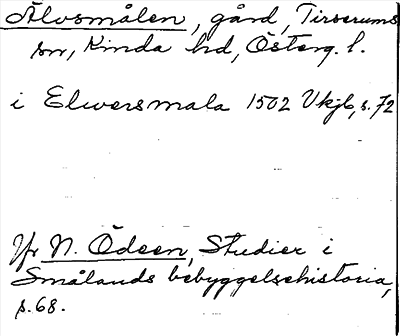 Älvsmålen, gård, Tirserums
sn, Kinda hd, Österg. l.
i Elwersmala 1502 Vkjb, s. 72
Jfr N. Ödeen, Studier i
Smålands bebyggelsehistoria,
s. 68.